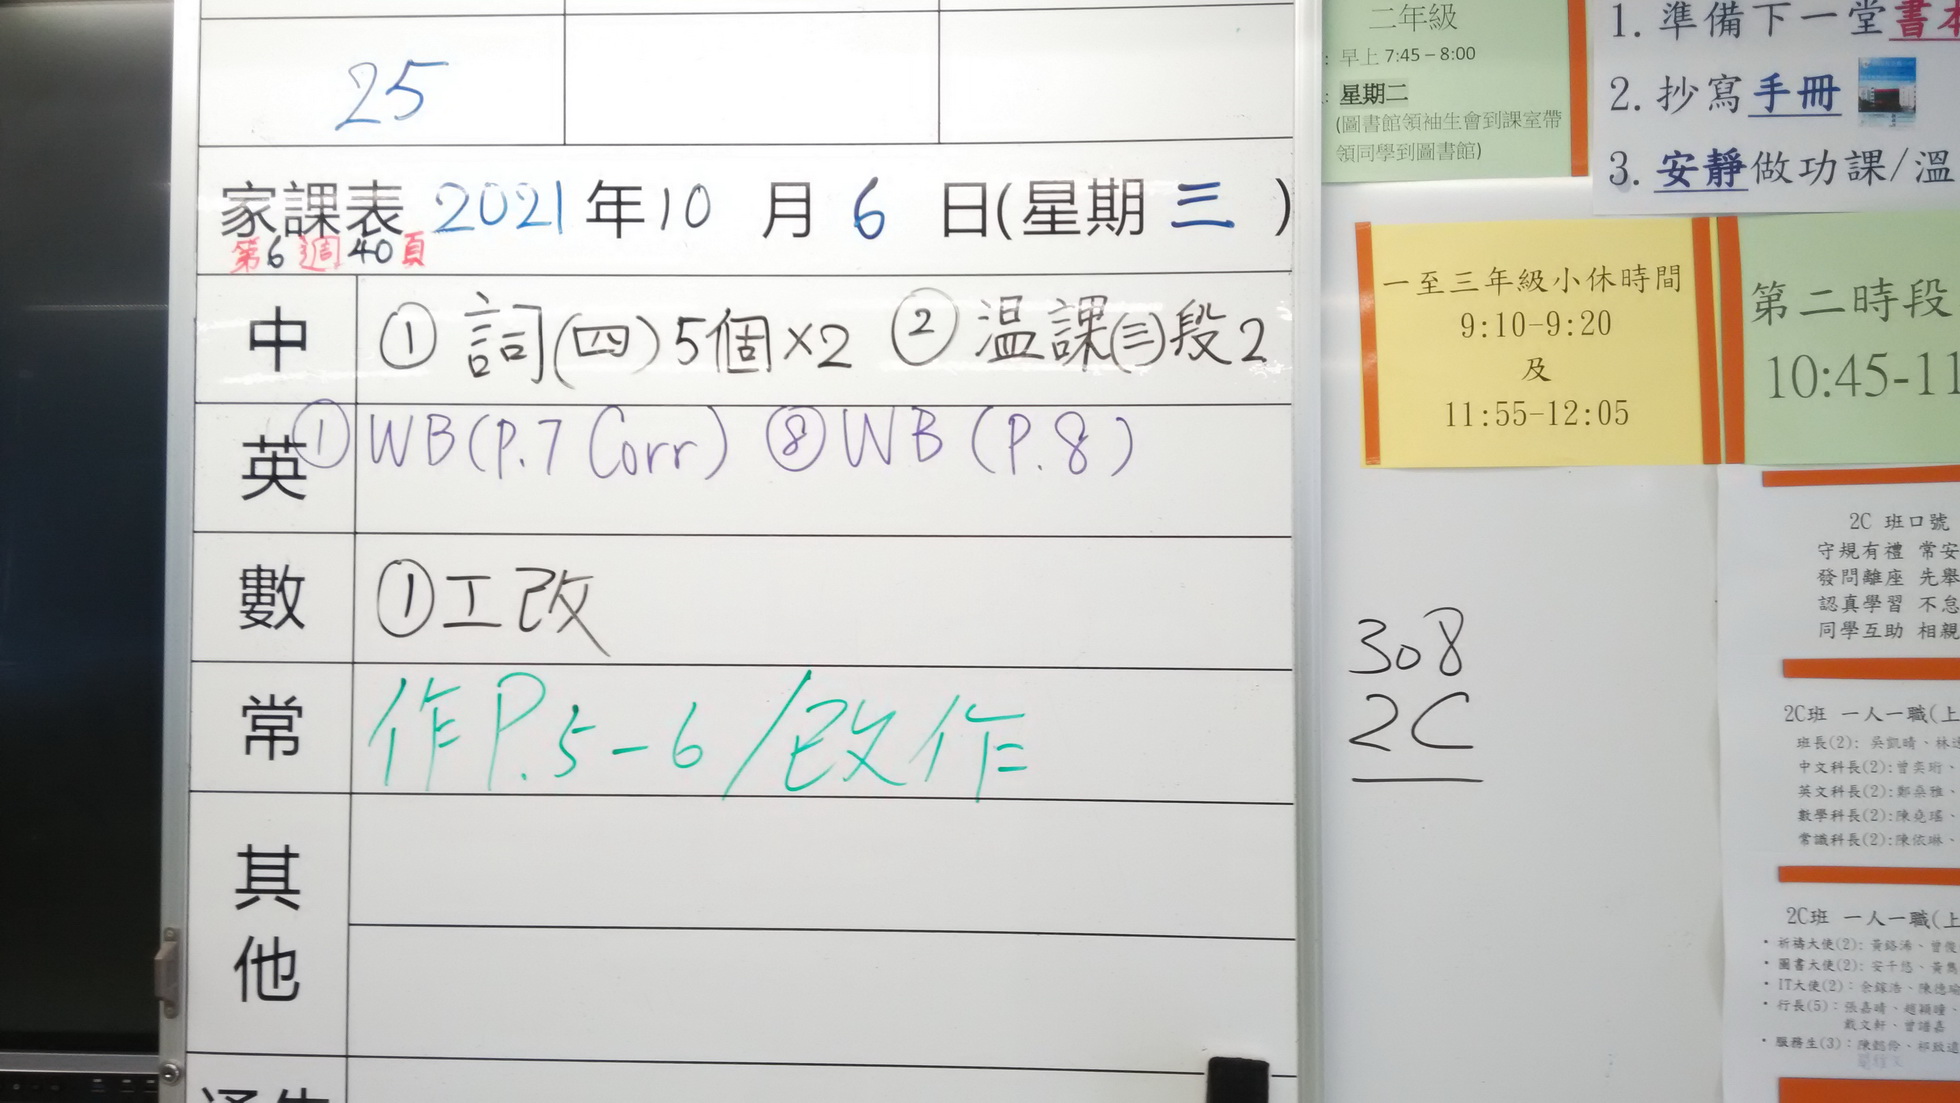 25
家課表 2021 年 10 月 6 日(星期 三 )
第 6 週 40 頁
中 ① 詞(四)5個×2 ② 溫課(三)段2
英 ① WB(P.7 Corr) ⑧ WB (P.8)
數 ①工改
常 作P.5-6/改作
其他
二年級
早上 7:45 – 8:00
星期二
(圖書館領袖生會到課室帶
領同學到圖書館)
1. 準備下一堂書本
2. 抄寫手冊
3. 安靜做功課/溫
一至三年級小休時間
9:10-9:20
及
11:55-12:05
第二時段
10:45-11
308
2C
2C 班口號
守規有禮 常安
發問離座 先舉
認真學習 不怠
同學互助 相親
2C班 一人一職(上
班長(2): 吳凱晴、林
中文科長(2):曾奕珩、
英文科長(2):鄭燊雅、
數學科長(2):陳堯瑤、
常識科長(2):陳依琳、
2C班 一人一職(上
• 祈禱大使(2): 黃鉻浠、曾俊
• 圖書大使(2): 安千悠、黃雋
• IT大使(2): 余鎵浩、陳德瑜
• 行長(5): 張嘉晴、趙穎曈、
戴文軒、曾譜嘉
• 服務生(3): 陳懿伶、